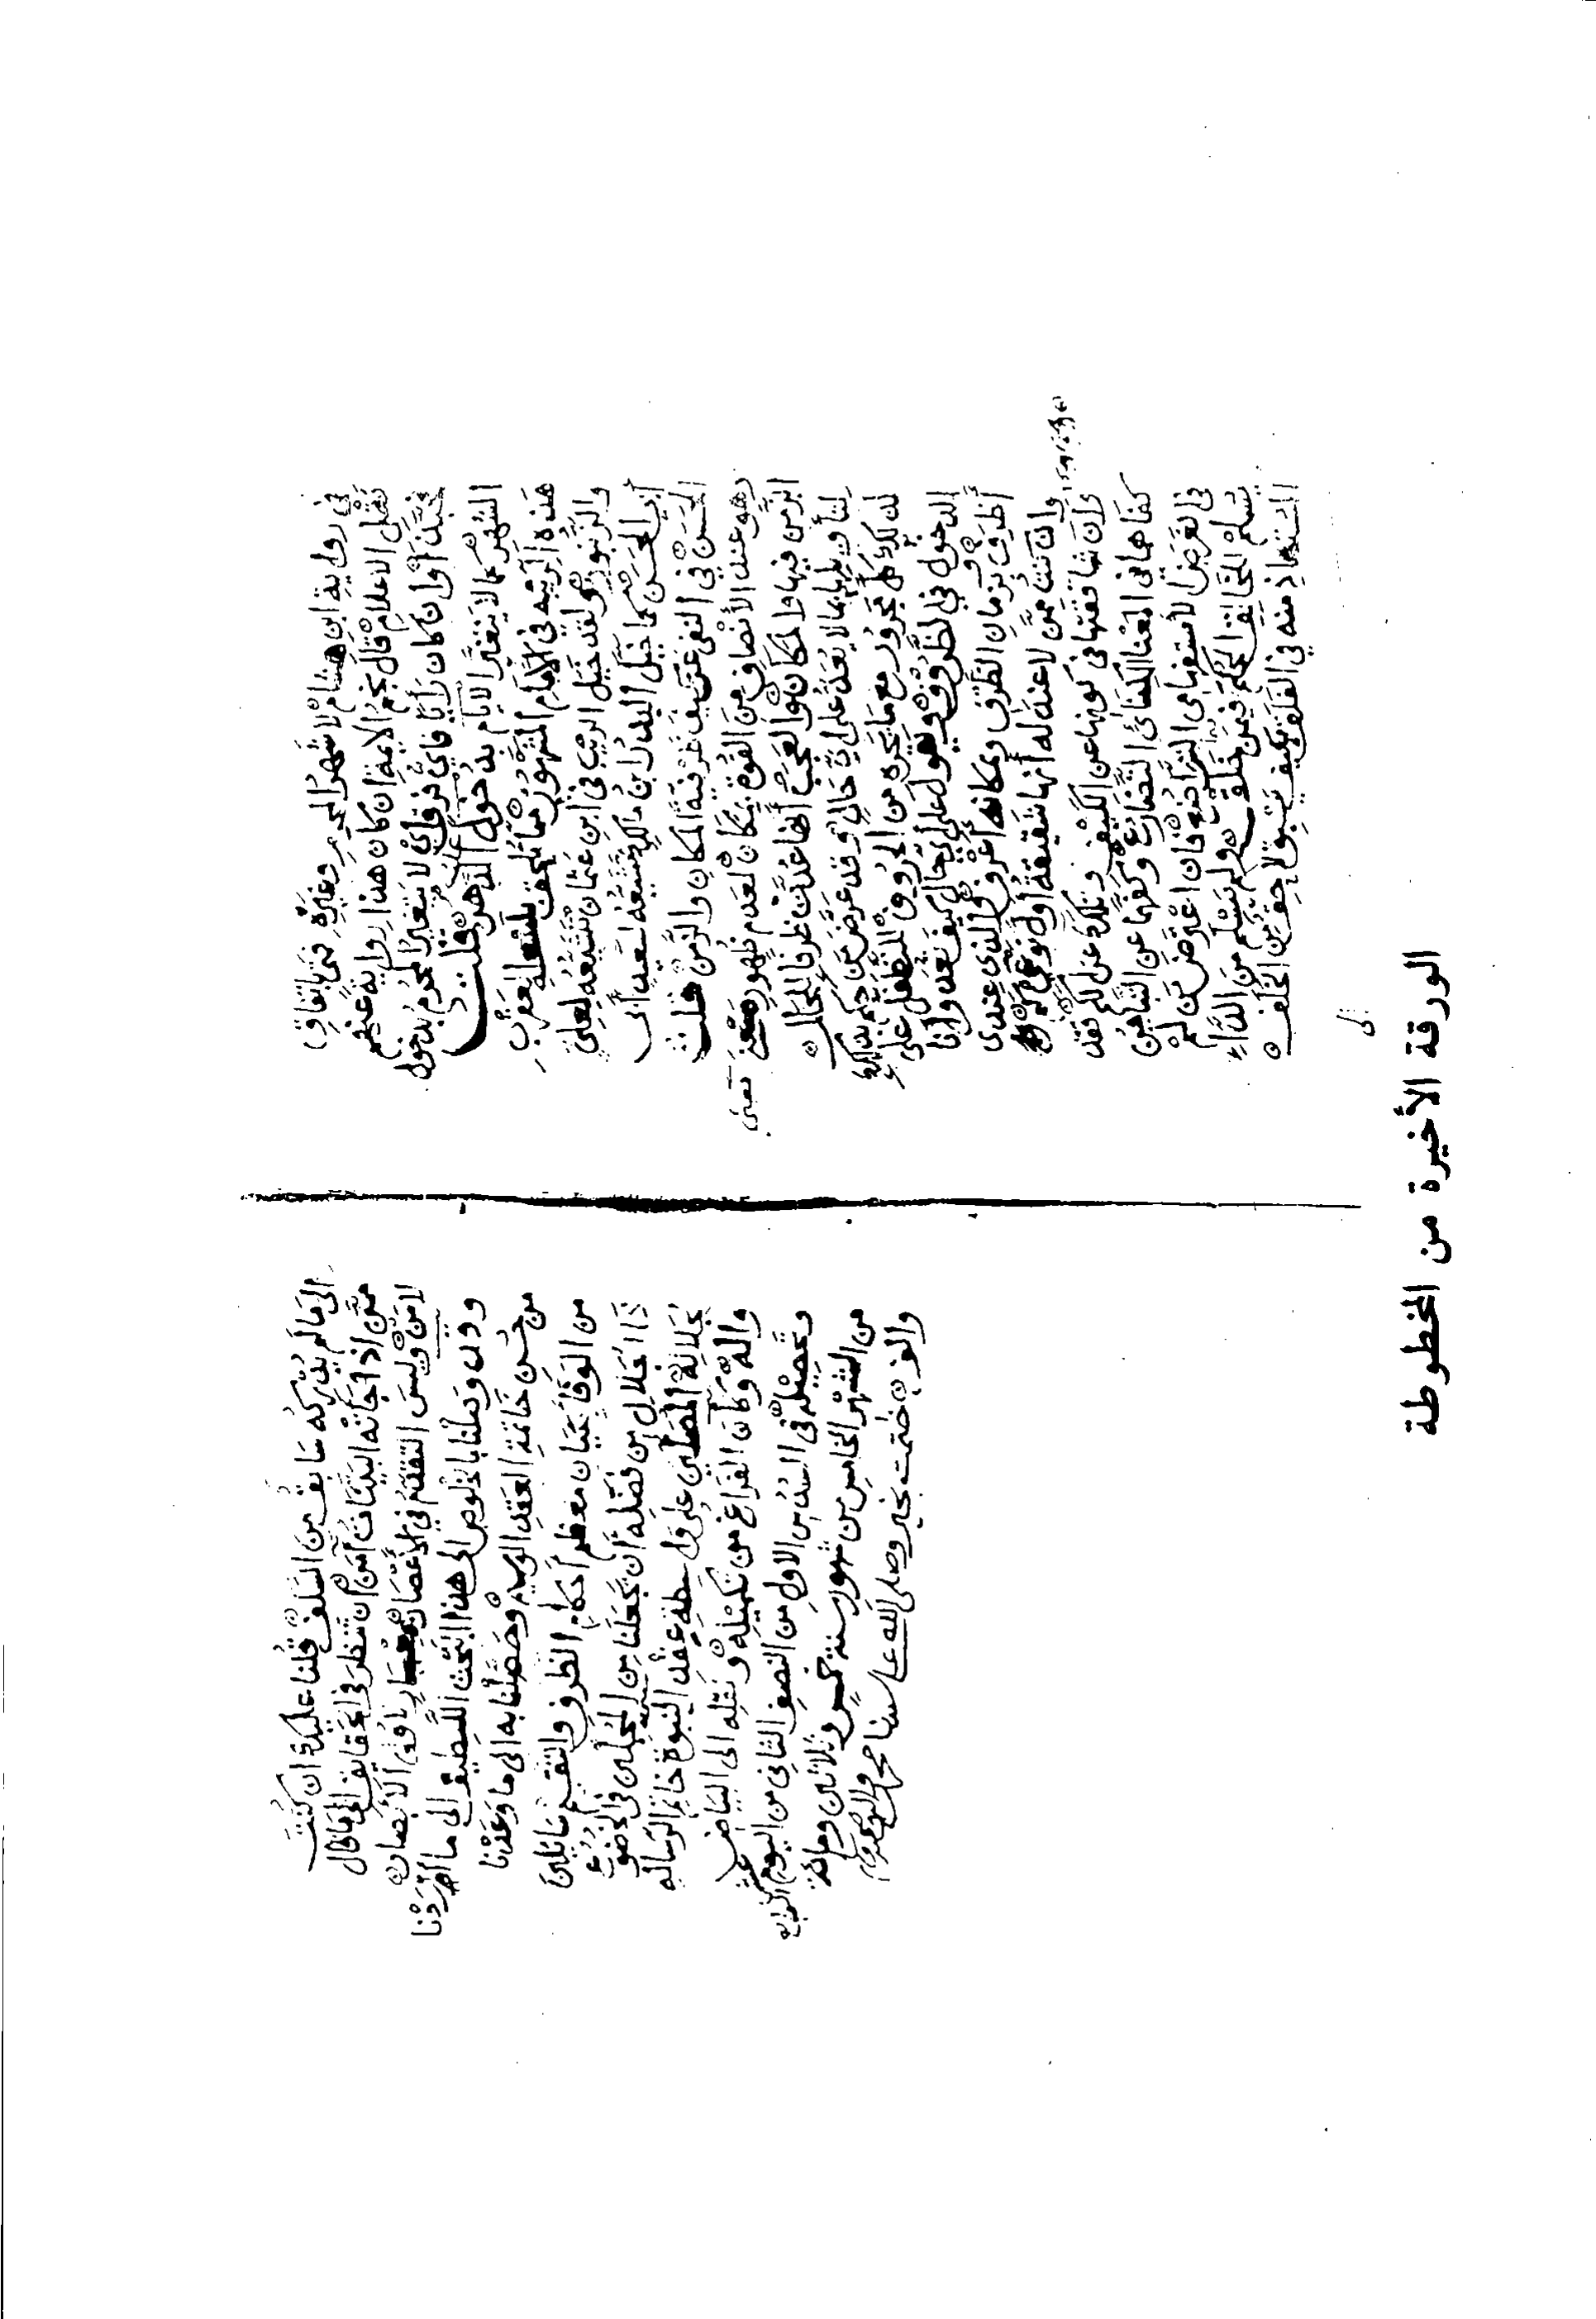 في رواية ابن هشام لا شهر المحرم وغيره فمتى باتفاق
نقل الاعلام قال نجم الايمة ان كان هذا رواية عنهم
فحبذا وان كان رأيا فاي فرق اي لا يتغير المحرم بدخول
الشهر كما لا يتغير الايام بدخول الدهر قلت
هذه الريبة في الايام المشهور مما تلحق بلسعة العقرب
والزنبور هو لقد خيل الريب في ابن عثمان تشبيهه لعلي
أبي الحسن كما خيل البدر ابن مالك تشبيهه لسعد أبي
الحسن في النفي عن كيف ظرفية المكان والزمن قلت
وهو عند الأنصاف من القوة بمكان لعدم ظهور معنى
الزمن فيها والمكان والعجب أنها عدت ظرفا للحال
لتأويلها بما لا يعد على حال وقد عرض من حكم بذلك
لك لذلك كل مجرور مع ما يجره من الحروف للتطفل على
الدخول في الظروف ويقول على أي حال كيف تعد وأنا
أظرف بزمان الظرف ومكانه أعرف والذي عندي
وان كنت ممن لا عند له أنها شقيقة أول نوعي كم
وان شاققتها في كونها عن الكيف وتلك عن الكم فقد
كفاهما في المعنا الكفائ التضارع وكفهما عن التباين
في الغرض الاستفهامي التراضع فان اعترض من لم
يسلم للحقايق الحكم فيمن خلق ولم يسلم من الداء
المستعاذ منه في الفلق بكيف يسبق لاحق من الخلف
الى
الى ما لم يدركه سابق من السلف قلنا عليك ان كنت
ممن اذا جاته البينات آمن أن تنظر في الحقايق الى ما قال
لا من وليس التقدم في الأعصار بمعيار نافع الأبصار
ودل وصلنا بالخلوص الى هذا البحث اللطيف الى ما أوردنا
من حسن خاتمة العقد الوسيم وحصلنا به الى ما وعدنا
من الوفاء ببيان معظم أحكام الظرف والتقسيم سائلين
ذا الجلال من فضله أن يجعلنا من المجلين في الخضوع
لجلاله المصلين على واسطة عقد النبوة خاتم الرساله
واله وكان الفراغ من تكميله ونقله الى البياض
وتحصيله في السدس الاول من النصف الثاني من اليوم الرابع عشر
من الشهر الخامس من شهور سنة خمس وثلاثين ومائة
والف ختمت بخير وصلى الله على سيدنا محمد واله وصحبه وسلم
الورقة الأخيرة من المخطوطة